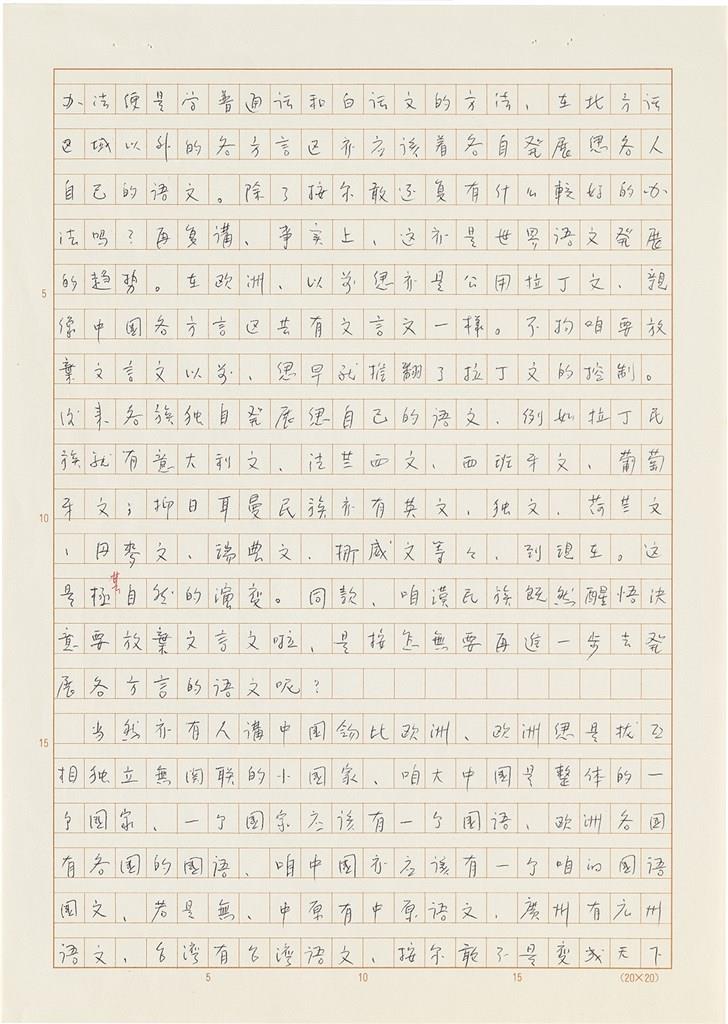 办法便是学普通话和白话文的方法、在北方话
区域以外的各方言区亦应该着各自発展恁各人
自己的语文。除了按尔敢还复有什么較好的办
法吗？再复講、事实上、这亦是世界语文発展
5 的趋势。在欧洲、以前恁亦是公用拉丁文、親
像中國各方言区共有文言文一樣。不拘咱要放
棄文言文以前、恁早就推翻了拉丁文的控制。
後来各族独自発展恁自己的语文、例如拉丁民
族就有意大利文、法兰西文、西班牙文、葡萄
10 牙文；抑日耳曼民族亦有英文、独文、荷兰文
、丹麥文、瑞典文、挪威文等々、到现在。这
是極其自然的演変。同款、咱漢民族既然醒悟决
意要放棄文言文啦、是按怎無要再進一步去発
展各方言的语文呢？
15 当然亦有人講中国䆀比欧洲、欧洲恁是拔互
相独立無関联的小國家、咱大中國是整体的一
个國家、一个國家应该有一个國语、欧洲各国
有各国的國语、咱中國亦应该有一个咱的國语
國文、若是無、中原有中原语文、廣州有広州
语文、台湾有台湾语文、按尔敢不是変成天下
5 10 15 (20×20)